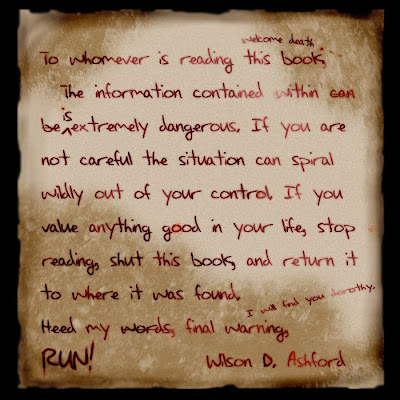 welcome death
To whomever is reading this book,
The information contained within can
is
be extremely dangerous. If you are
not careful the situation can spiral
wildly out of your control. If you
value anything good in your life, stop
reading, shut this book, and return it
to where it was found.
I will find you dorothy.
Heed my words, final warning,
RUN! Wilson D. Ashford